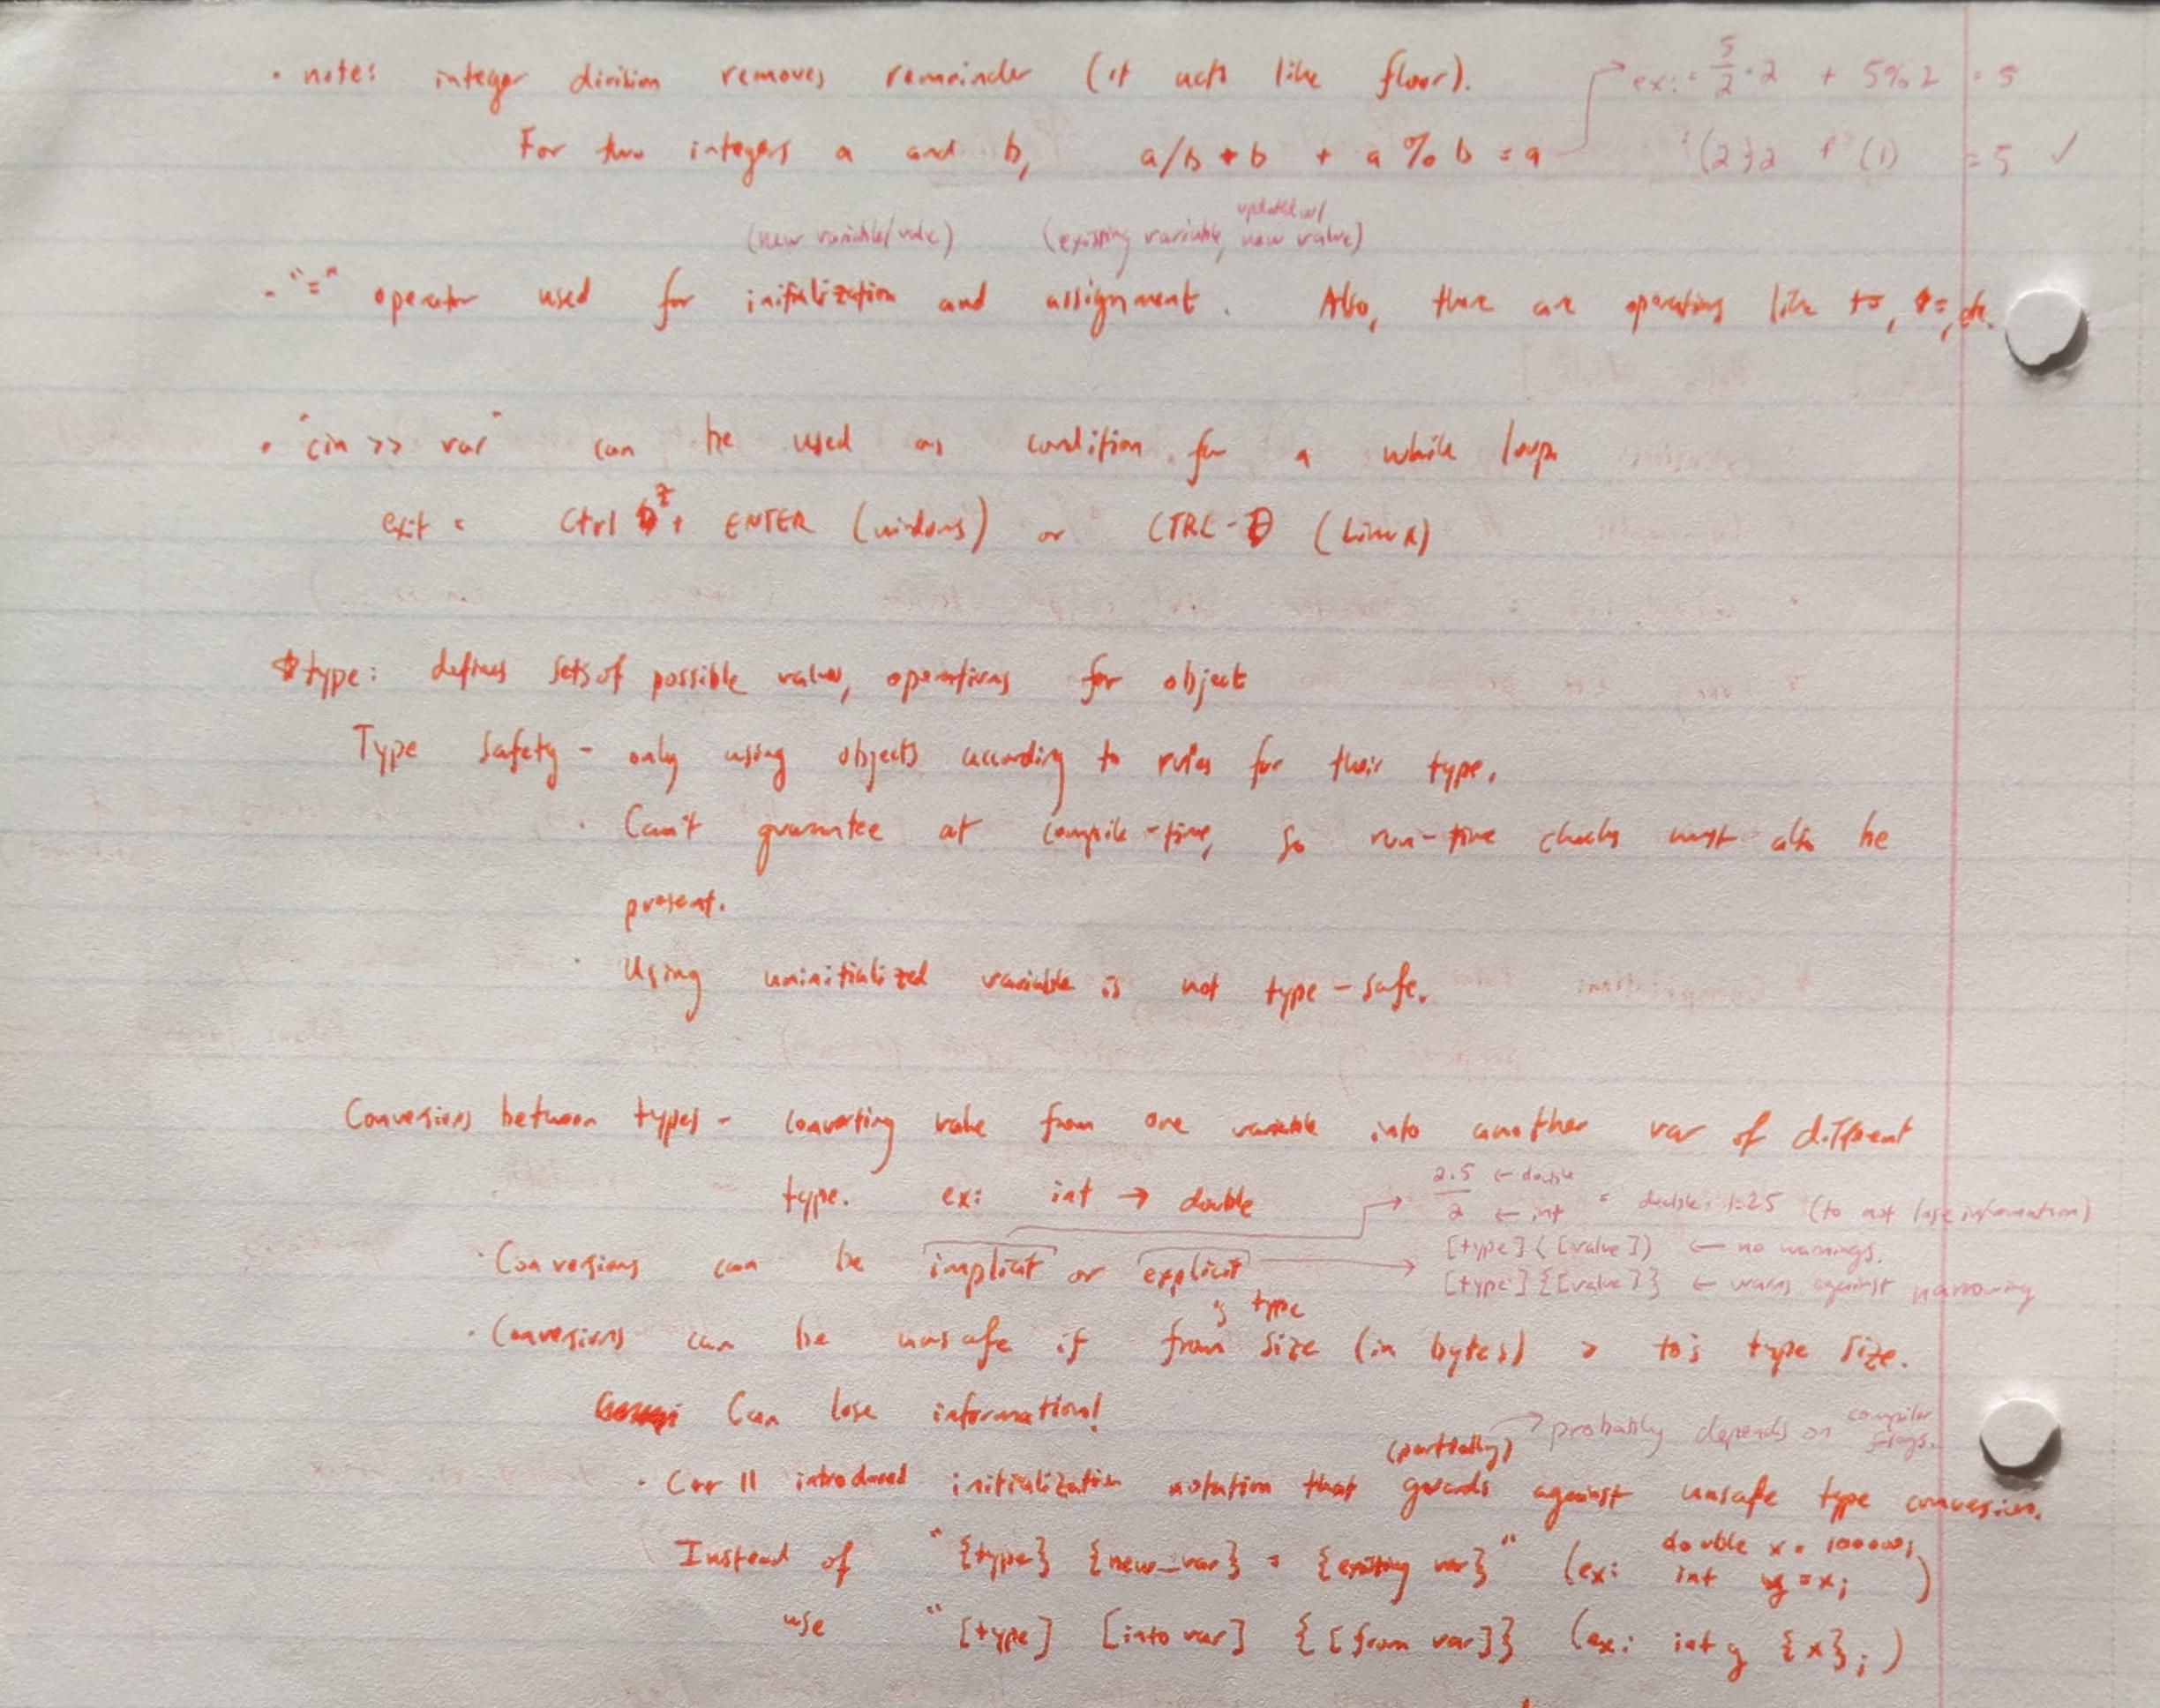 · note: integer division removes remainder (it acts like floor).
ex: = 5/2 · 2 + 5%2 = 5
For two integers a and b, a/b * b + a % b = a
(2)2 + (1) = 5 ✓
(new variable/value) (existing variable, updated w/ new value)
· "=" operator used for initialization and assignment. Also, there are operations like += , *= , etc.
· "cin >> var" can be used as condition for a while loop
exit = Ctrl Z + ENTER (windows) or CTRL-D (Linux)
* type: defines sets of possible values, operations for object
Type Safety - only using objects according to rules for their type.
· Can't guarantee at compile-time, so run-time checks must also be
present.
· Using uninitialized variable is not type-safe.
Conversions between types - converting value from one variable into another var of different
type. ex: int → double
2.5 ← double
2 ← int = double: 1.25 (to not lose information)
· Conversions can be implicit or explicit
[type]([value]) ← no warnings.
[type]{[value]} ← warns against narrowing
· Conversions can be unsafe if from's type size (in bytes) > to's type size.
Can lose information!
· C++ 11 introduced initialization notation that (partially) guards against unsafe type conversion.
→ probably depends on compiler flags.
Instead of "{type} {new_var} = {existing var}" (ex: double x = 100000; int y = x; )
use "[type] [into var] {[from var]} (ex: int y {x}; )